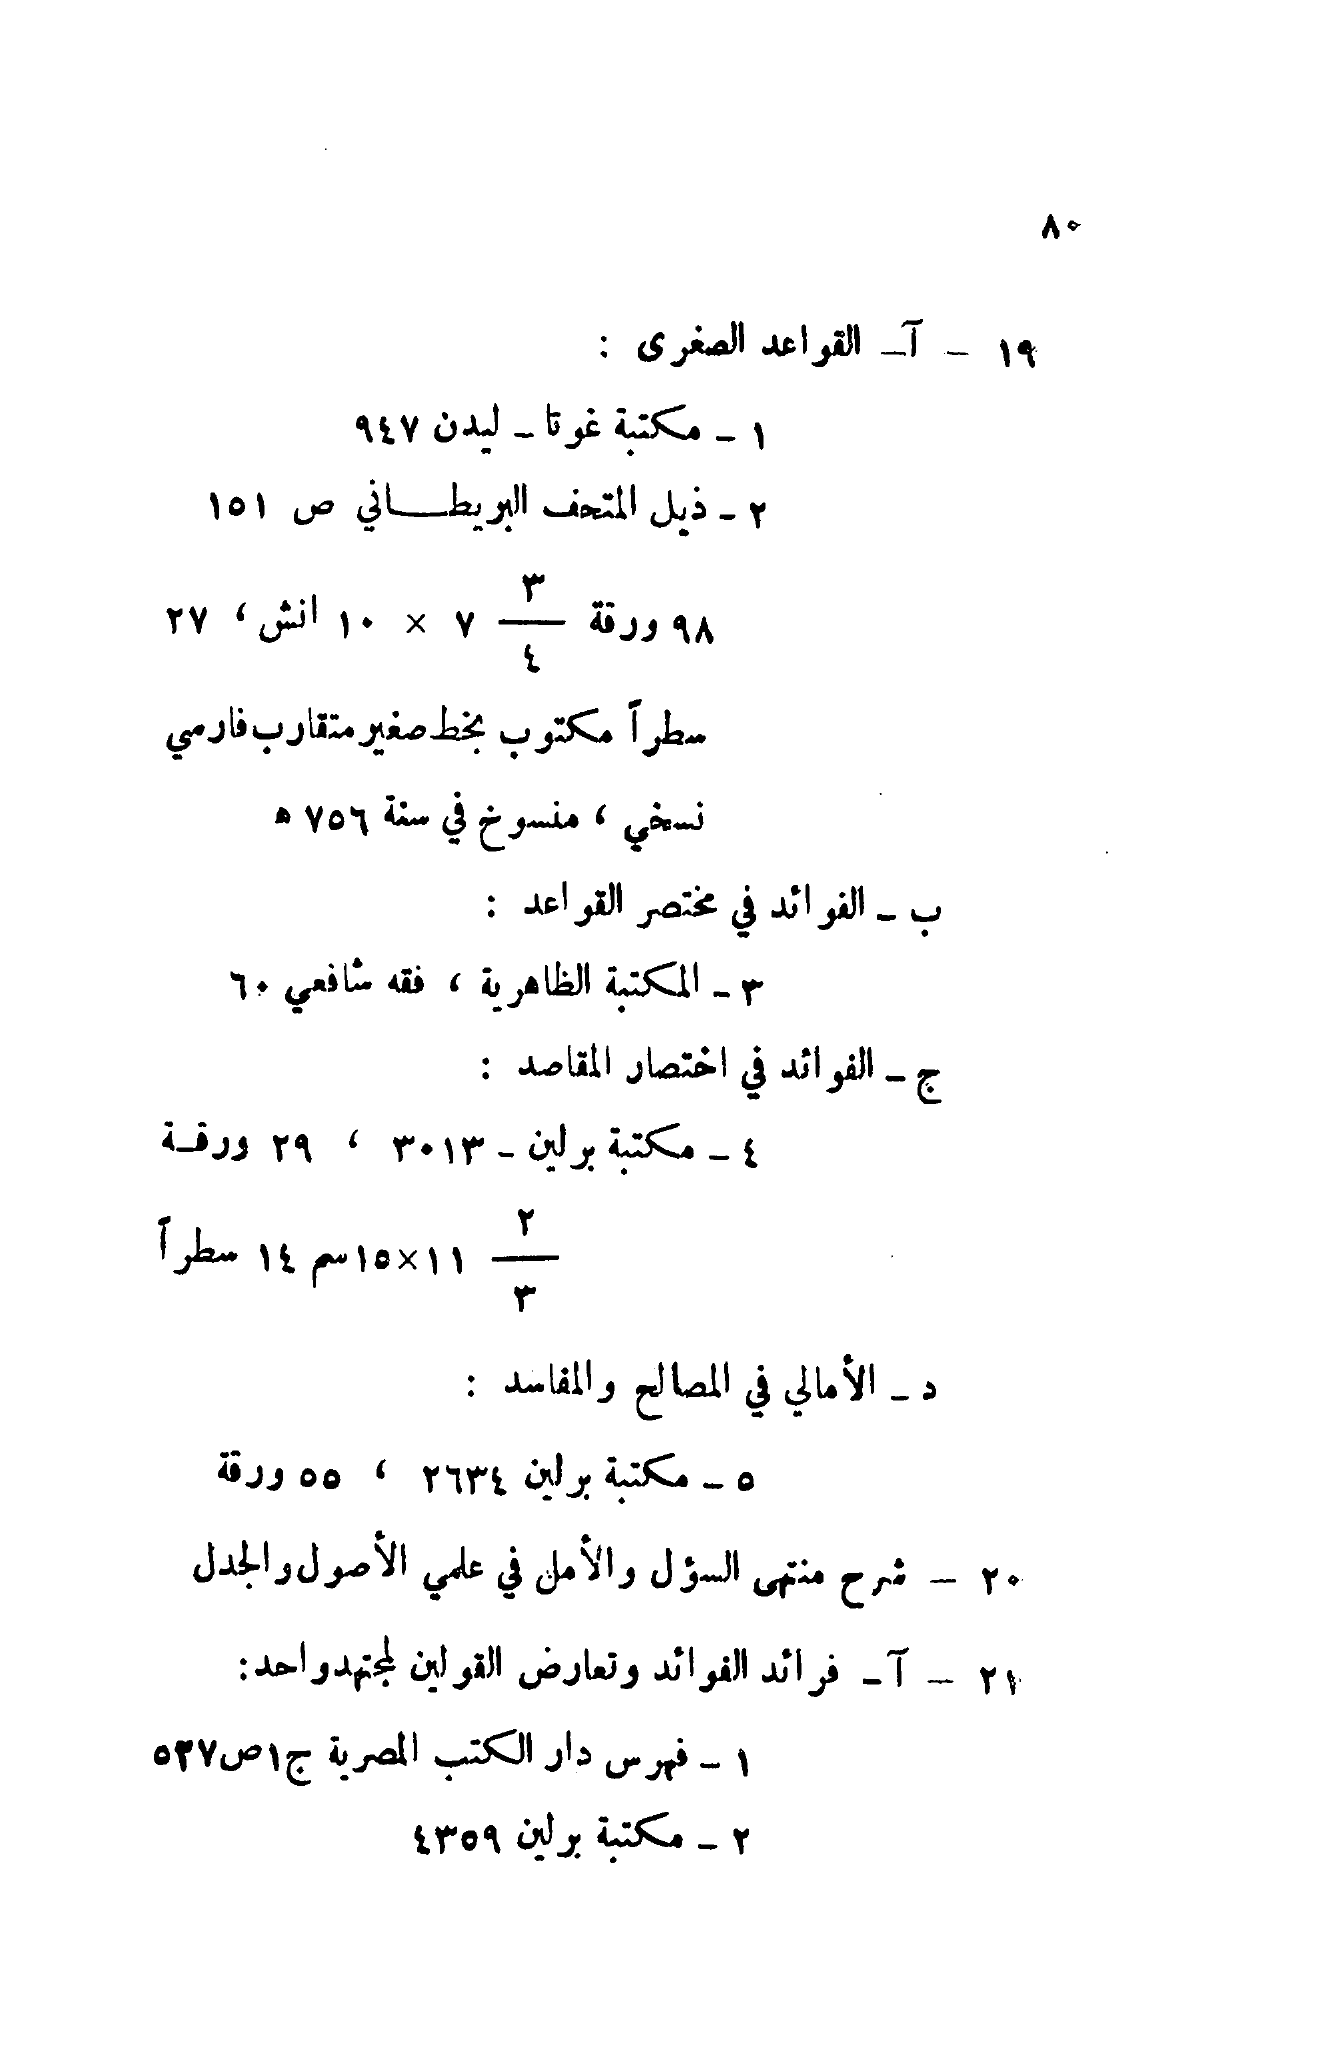 ٨٠
١٩ – آ – القواعد الصغرى :
١ – مكتبة غوتا – ليدن ٩٤٧
٢ – ذيل المتحف البريطـــاني ص ١٥١
٩٨ ورقة ٣/٤ ٧ × ١٠ انش ، ٢٧
سطراً مكتوب بخط صغير متقارب فارسي
نسخي ، منسوخ في سنة ٧٥٦ ه
ب – الفوائد في مختصر القواعد :
٣ – المكتبة الظاهرية ، فقه شافعي ٦٠
ج – الفوائد في اختصار المقاصد :
٤ – مكتبة برلين – ٣٠١٣ ، ٢٩ ورقـة
٢/٣ ١١×١٥سم ١٤ سطراً
د – الأمالي في المصالح والمفاسد :
٥ – مكتبة برلين ٢٦٣٤ ، ٥٥ ورقة
٢٠ – شرح منتهى السؤل والأمل في علمي الأصول والجدل
٢١ – آ – فرائد الفوائد وتعارض القولين لمجتهد واحد:
١ – فهرس دار الكتب المصرية ج١ص٥٣٧
٢ – مكتبة برلين ٤٣٥٩